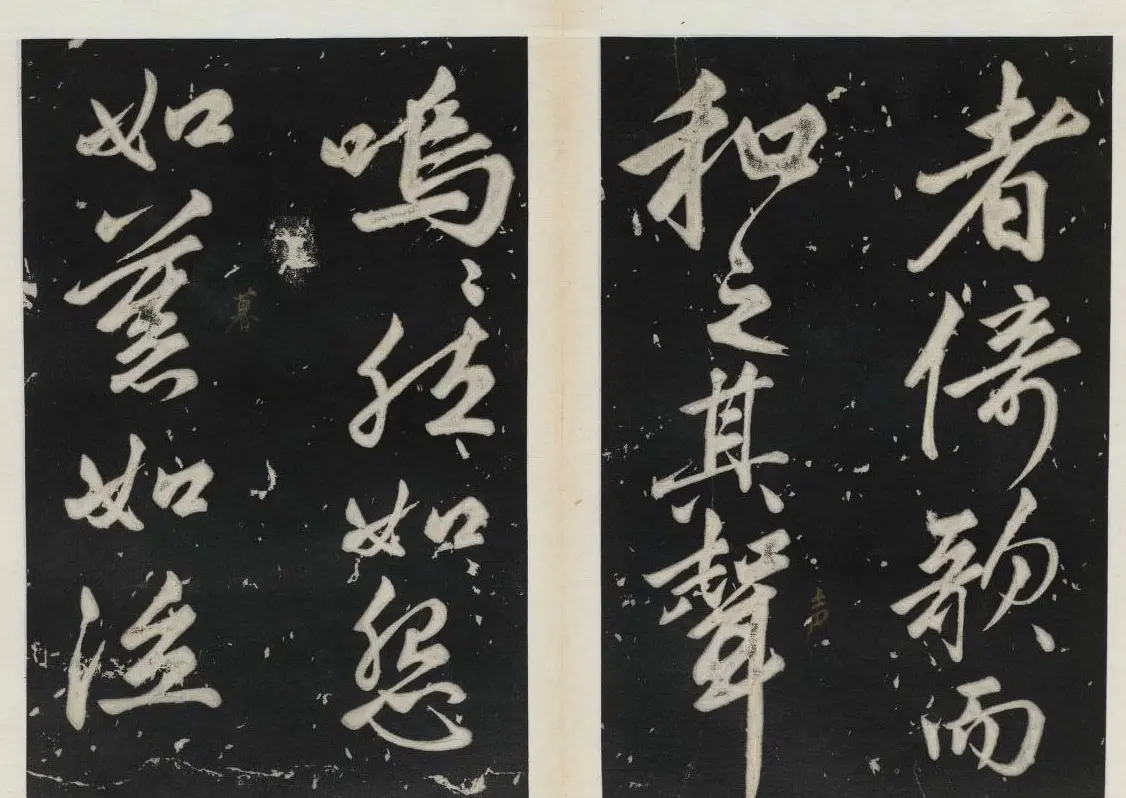 者倚歌而
和之其聲
声
嗚〻然如怨
如慕如泣